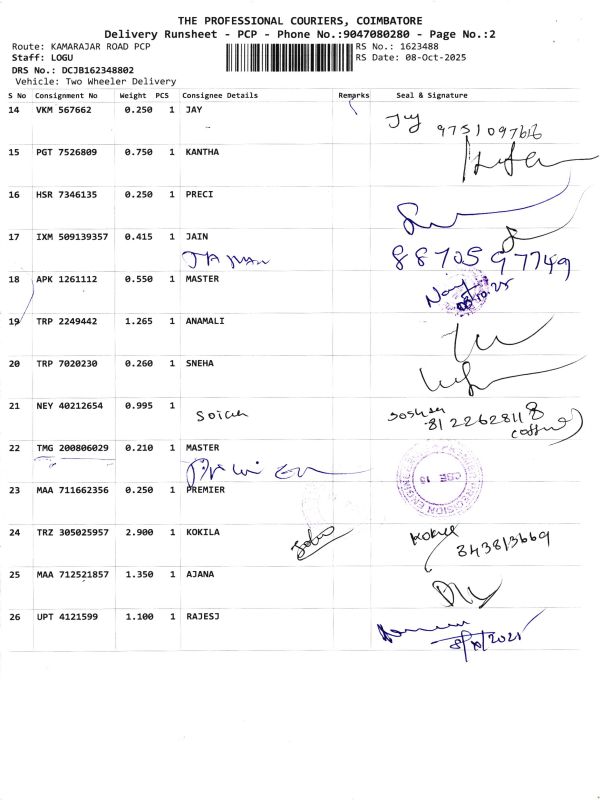 THE PROFESSIONAL COURIERS, COIMBATORE
Delivery Runsheet - PCP - Phone No.:9047080280 - Page No.:2
Route: KAMARAJAR ROAD PCP RS No.: 1623488
Staff: LOGU RS Date: 08-Oct-2025
DRS No.: DCJB162348802
Vehicle: Two Wheeler Delivery
S No Consignment No Weight PCS Consignee Details Remarks Seal & Signature
14 VKM 567662 0.250 1 JAY
Jay 9751097616
15 PGT 7526809 0.750 1 KANTHA
16 HSR 7346135 0.250 1 PRECI
17 IXM 509139357 0.415 1 JAIN
8870597749
18 APK 1261112 0.550 1 MASTER
08.10.25
19 TRP 2249442 1.265 1 ANAMALI
20 TRP 7020230 0.260 1 SNEHA
21 NEY 40212654 0.995 1
8122628118
22 TMG 200806029 0.210 1 MASTER
CBE 15
23 MAA 711662356 0.250 1 PREMIER
24 TRZ 305025957 2.900 1 KOKILA
25 MAA 712521857 1.350 1 AJANA
26 UPT 4121599 1.100 1 RAJESJ
8/10/2025